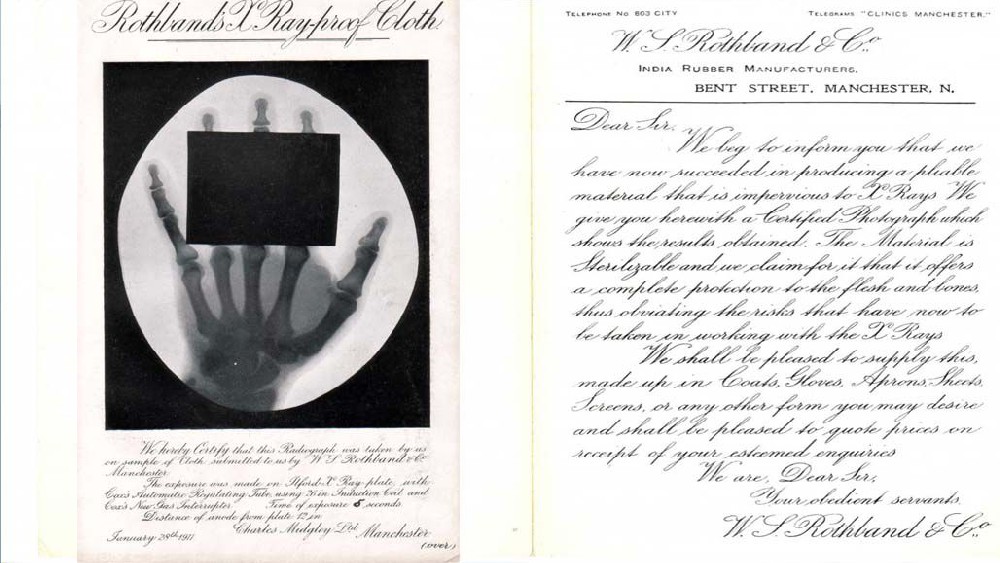 Rothband's X Ray-proof Cloth.
We hereby Certify that this Radiograph was taken by us
on sample of Cloth submitted to us by W S Rothband & Co
Manchester.
The exposure was made on Ilford X Ray plate, with
Cox's Automatic Regulating Tube, using in Induction Coil and
Cox's New Gas Interrupter. Time of exposure 5 seconds.
Distance of anode from plate in
Charles Midgley Ltd Manchester
January 28th 1911
(over)
Telephone No 863 City
Telegrams "Clinics Manchester."
W. S. Rothband & Co.
India Rubber Manufacturers.
BENT STREET, MANCHESTER, N.
Dear Sir,
We beg to inform you that we
have now succeeded in producing a pliable
material that is impervious to X Rays We
give you herewith a Certified Photograph which
shows the results obtained. The Material is
Sterilizable and we claim for it that it offers
a complete protection to the flesh and bones,
thus obviating the risks that have now to
be taken in working with the X Rays
We shall be pleased to supply this,
made up in Coats, Gloves, Aprons, Sheets,
Screens, or any other form you may desire
and shall be pleased to quote prices on
receipt of your esteemed enquiries
We are, Dear Sir,
Your obedient servants,
W. S. Rothband & Co.